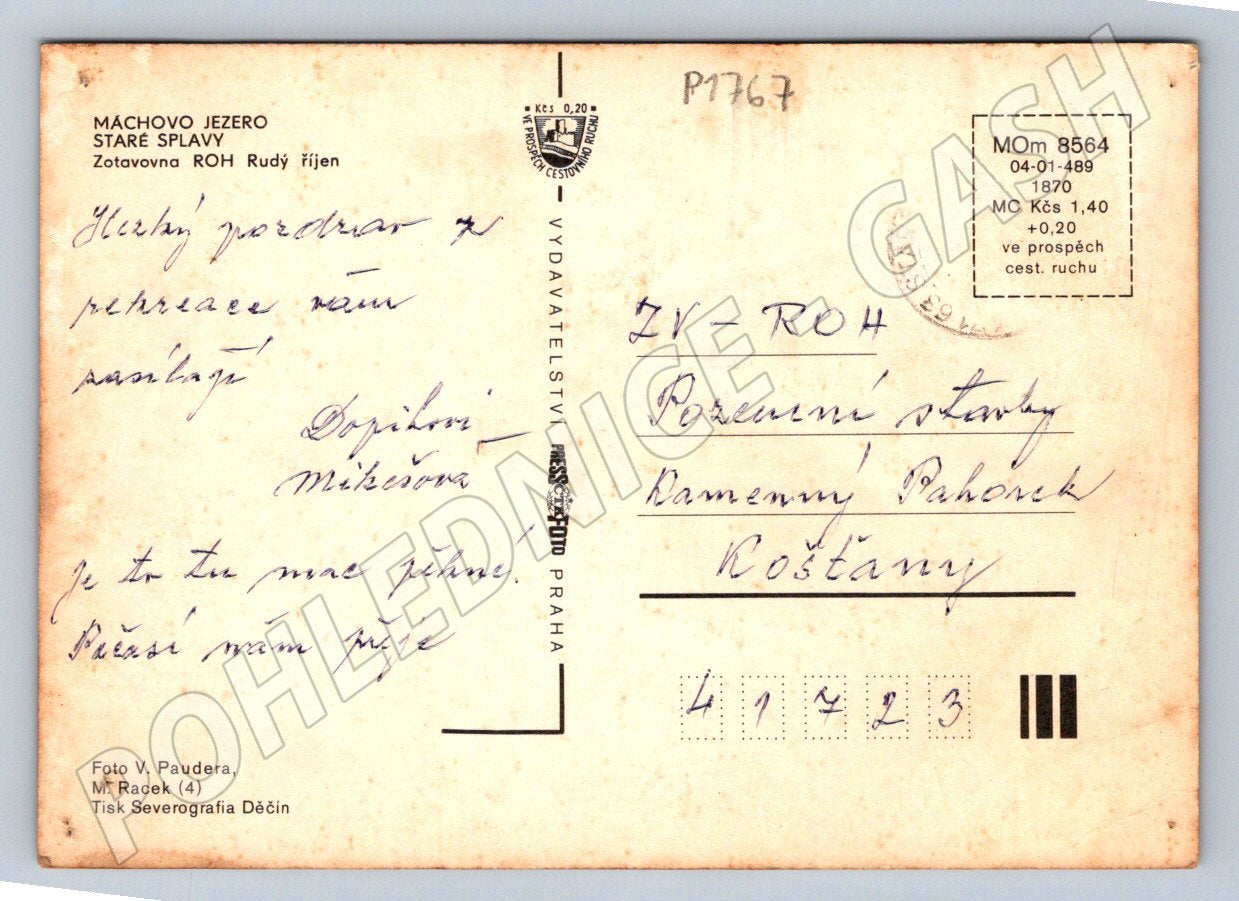 P1767
MÁCHOVO JEZERO
STARÉ SPLAVY
Zotavovna ROH Rudý říjen
Hezký pozdrav z
rekreace vám
zasílají
Dopihovi
Mikešova
Je to tu moc pěkné!
Počasí nám přeje
Foto V. Paudera,
M. Racek (4)
Tisk Severografia Děčín
Kčs 0,20
VE PROSPĚCH CESTOVNÍHO RUCHU
VYDAVATELSTVÍ PRESSFOTO PRAHA
ČTK
MOm 8564
04-01-489
1870
MC Kčs 1,40
+0,20
ve prospěch
cest. ruchu
ZV – ROH
Pozemní stavby
Kamenný Pahorek
Košťany
41723
POHLEDNICE - GASH